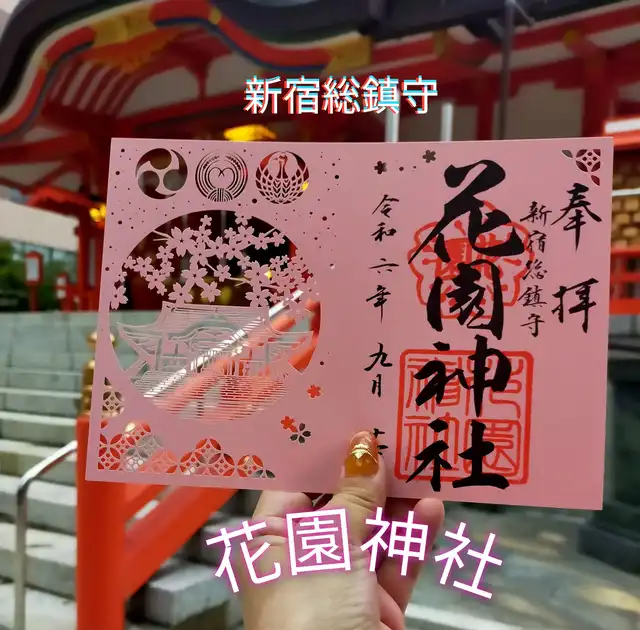 新宿総鎮守
奉拝
新宿総鎮守
花園神社
令和六年九月
花園神社